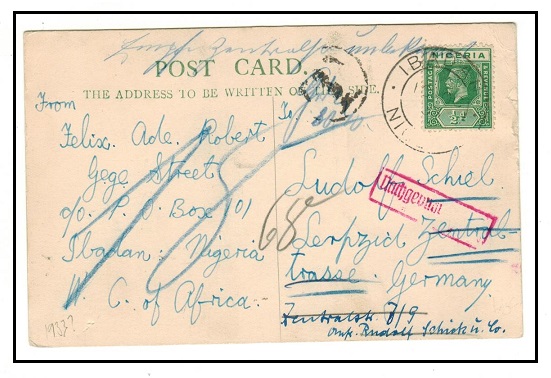 POST CARD.
THE ADDRESS TO BE WRITTEN ON THIS SIDE.
NIGERIA
POSTAGE
½d
IB
From
Felix. Ade. Robert
Gege Street
c/o. P. O Box 101
Ibadan: Nigeria
W. C. of Africa.
To
Ludolf Schiel
Leipzid Zentral-
trasse. Germany
Zentralstr. 7/9
Rudolf Schick u. Co.
15
68
1933?